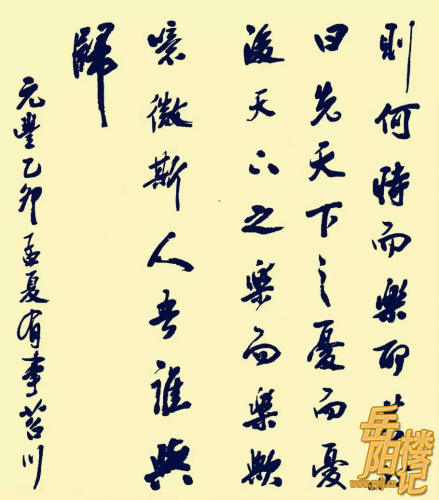 則何時而樂耶其
曰先天下之憂而憂
後天下之樂而樂歟
噫微斯人吾誰與
歸
元豐乙卯孟夏有事苕川
岳阳楼记